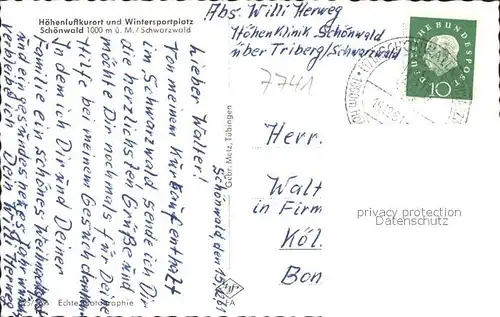 Höhenluftkurort und Wintersportplatz
Schönwald 1000 m ü. M./Schwarzwald
Abs. Willi Herweg
Höhenklinik Schönwald
über Triberg/Schwarzwald
7741
Schönwald den 15.12.61
Lieber Walter!
Von meinem Kuraufenthalt
im Schwarzwald sende ich Dir
die herzlichsten Grüße und
möchte Dir nochmals für Deine
Hilfe bei meinem Gesuch danken
In dem ich Dir und Deiner
Familie ein schönes Weihnachtsfest
und ein gesundes neues Jahr wünsche
Dein Willi Herweg
Gebr. Metz, Tübingen
Echte Photographie
DEUTSCHE BUNDESPOST
10
Herr.
Walt
in Firm
Köl.
Bon
privacy protection
oldthing.de